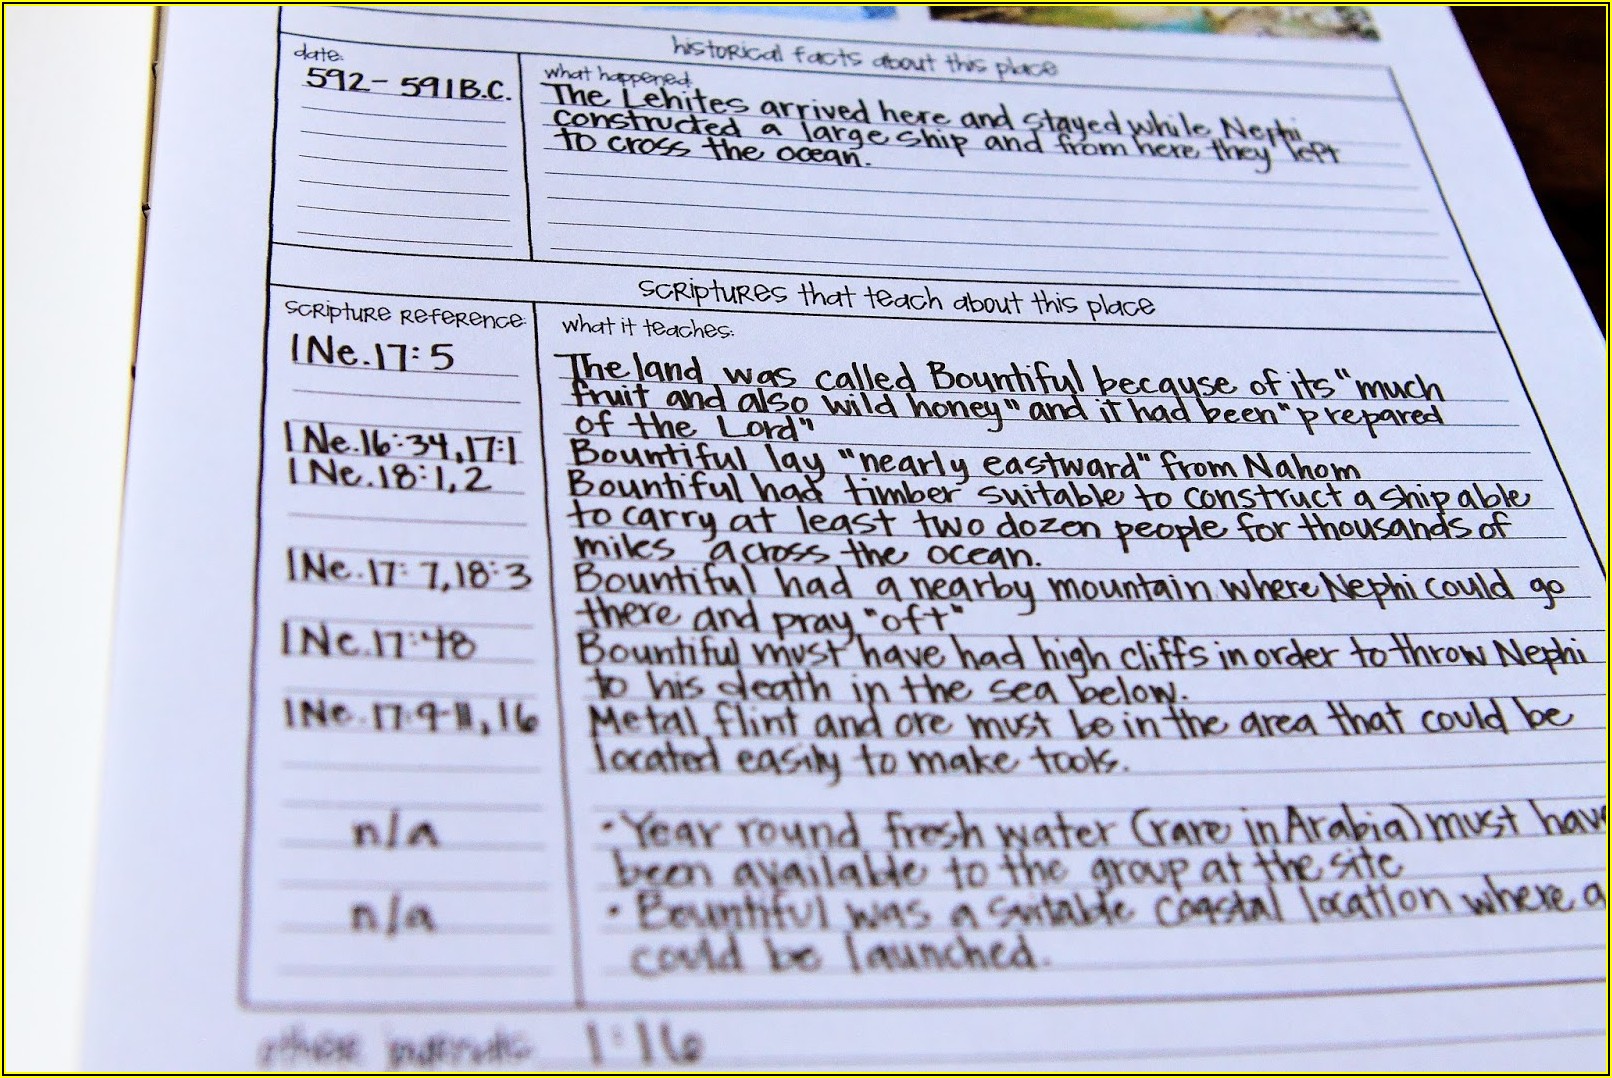 historical facts about this place
date:
what happened:
592 - 591 B.C.
The Lehites arrived here and stayed while Nephi
constructed a large ship and from here they left
to cross the ocean.
scriptures that teach about this place
scripture reference:
what it teaches:
1 Ne. 17:5
The land was called Bountiful because of its "much
fruit and also wild honey" and it had been "prepared
of the Lord"
1 Ne. 16:34, 17:1
Bountiful lay "nearly eastward" from Nahom
1 Ne. 18:1, 2
Bountiful had timber suitable to construct a ship able
to carry at least two dozen people for thousands of
miles across the ocean.
1 Ne. 17:7, 18:3
Bountiful had a nearby mountain where Nephi could go
there and pray "oft"
1 Ne. 17:48
Bountiful must have had high cliffs in order to throw Nephi
to his death in the sea below.
1 Ne. 17:9-11, 16
Metal, flint and ore must be in the area that could be
located easily to make tools.
n/a
• Year round fresh water (rare in Arabia) must have
been available to the group at the site
n/a
• Bountiful was a suitable coastal location where a
could be launched.
1:16